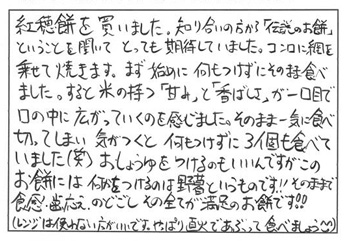 紅穂餅を買いました。知り合いの方から「伝説のお餅」
ということを聞いて とっても期待していました。コンロに網を
乗せて焼きます。まず始めに 何もつけずにそのまま食べ
ました。すると米の持つ「甘み」と「香ばしさ」が一口目で
口の中に広がっていくのを感じました。そのまま一気に食べ
切ってしまい 気がつくと 何もつけずに3個も食べて
いました(笑) おしょうゆをつけるのもいいんですがこの
お餅には 何かをつけるのは野暮というものです!! そのままで
食感・歯応え、のどごし その全てが満足のお餅です!!
(レンジは使わない方がいいです。やっぱり直火であぶって 食べましょう♡)